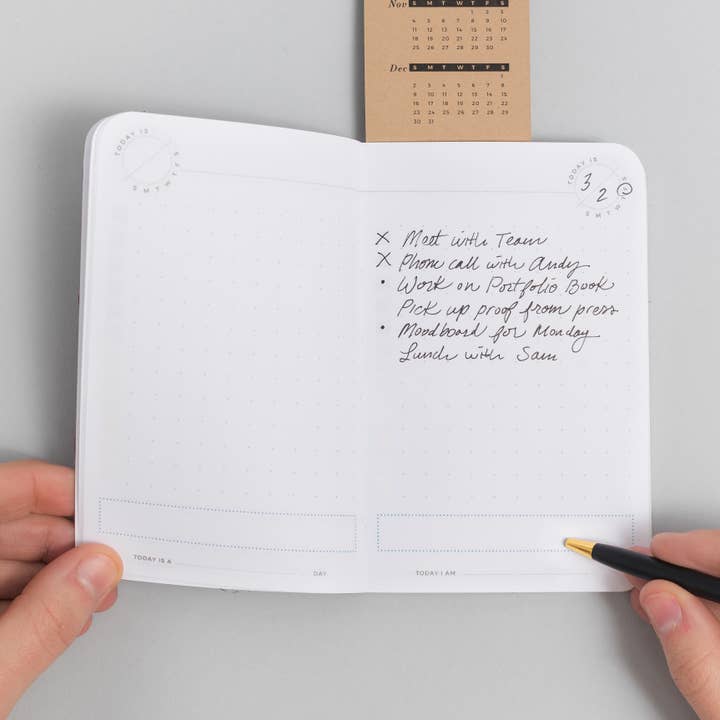 Nov S M T W T F S
1 2 3
4 5 6 7 8 9 10
11 12 13 14 15 16 17
18 19 20 21 22 23 24
25 26 27 28 29 30
Dec S M T W T F S
1
2 3 4 5 6 7 8
9 10 11 12 13 14 15
16 17 18 19 20 21 22
23 24 25 26 27 28 29
30 31
TODAY IS
S M T W T F S
TODAY IS A
DAY
TODAY IS
3
2
S M T W T F S
X Meet with Team
X Phone call with Andy
• Work on Portfolio Book
Pick up proof from press
• Moodboard for Monday
Lunch with Sam
TODAY I AM